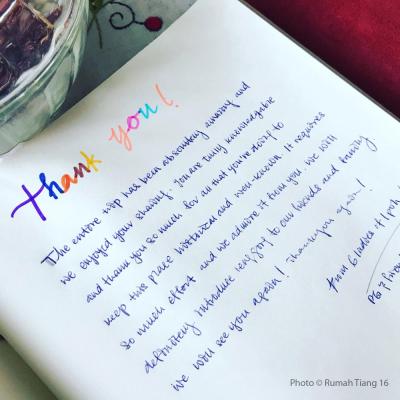 thank you!
The entire trip has been absolutely amazing and
we enjoyed your sharing. You are truly knowledgable
and thank you so much for all that you're doing to
keep this place historical and well-known. It requires
so much effort and we admire it from you. We will
definitely introduce to our friends and family.
We will see you again! Thank you again!
from 6 ladies +1 from
Photo © Rumah Tiang 16